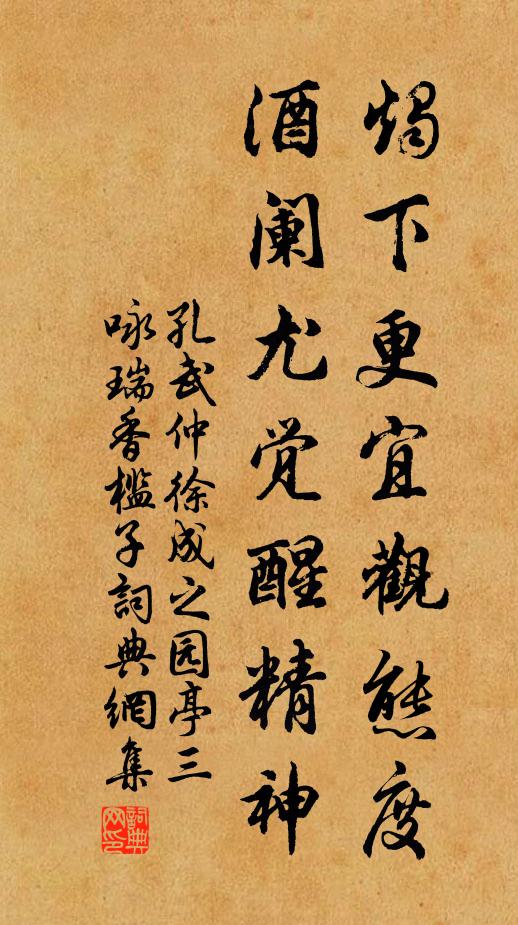 烛下更宜觀態度
酒阑尤觉醒精神
孔武仲徐成之园亭三
咏瑞香槛子詞典網集
詞典网印